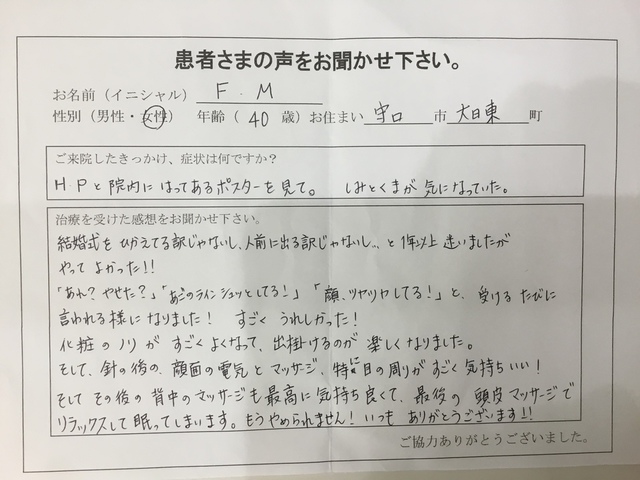 患者さまの声をお聞かせ下さい。
お名前（イニシャル） F．M
性別（男性・女性） 年齢（ 40 歳）お住まい 守口 市 大日東 町
ご来院したきっかけ、症状は何ですか？
HPと院内にはってあるポスターを見て。 しみとくまが気になっていた。
治療を受けた感想をお聞かせ下さい。
結婚式をひかえてる訳じゃないし、人前に出る訳じゃないし、、と1年以上迷いましたが
やってよかった!!
「あれ？やせた？」「あごのラインシュッとしてる！」「顔、ツヤツヤしてる！」と、受けるたびに
言われる様になりました！ すごくうれしかった！
化粧のノリがすごくよくなって、出掛けるのが楽しくなりました。
そして、針の後の、顔面の電気とマッサージ、特に目の周りがすごく気持ちいい！
そしてその後の背中のマッサージも最高に気持ち良くて、最後の頭皮マッサージで
リラックスして眠ってしまいます。もうやめられません！いつもありがとうございます!!
ご協力ありがとうございました。